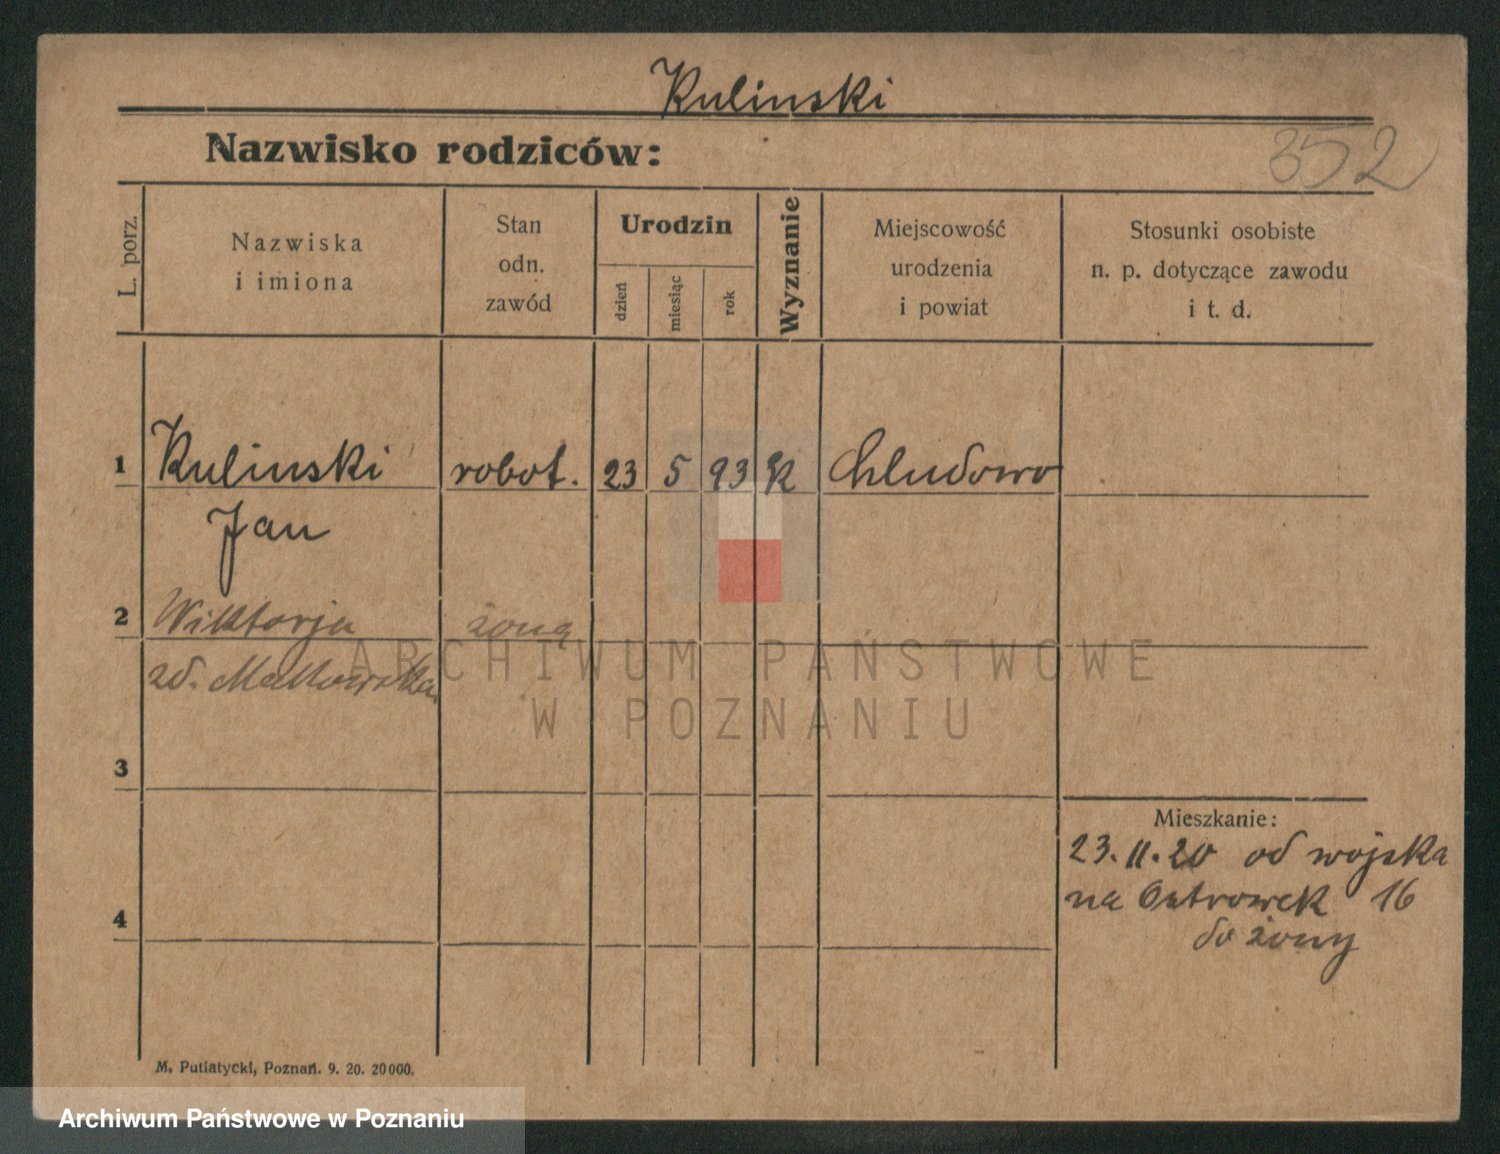 Kulinski
Nazwisko rodziców:
352
L. porz.
Nazwiska
i imiona
Stan
odn.
zawód
Urodzin
dzień
miesiąc
rok
Wyznanie
Miejscowość
urodzenia
i powiat
Stosunki osobiste
n. p. dotyczące zawodu
i t. d.
1 Kulinski robot. 23 5 93 k Chludowo
Jan
2 Wiktorja żona
zd. Malkowska
ARCHIWUM PAŃSTWOWE
W POZNANIU
3
Mieszkanie:
23.11.20 od wojska
na Ostrowek 16
do żony
4
M. Putiatycki, Poznań. 9. 20. 20000.
Archiwum Państwowe w Poznaniu